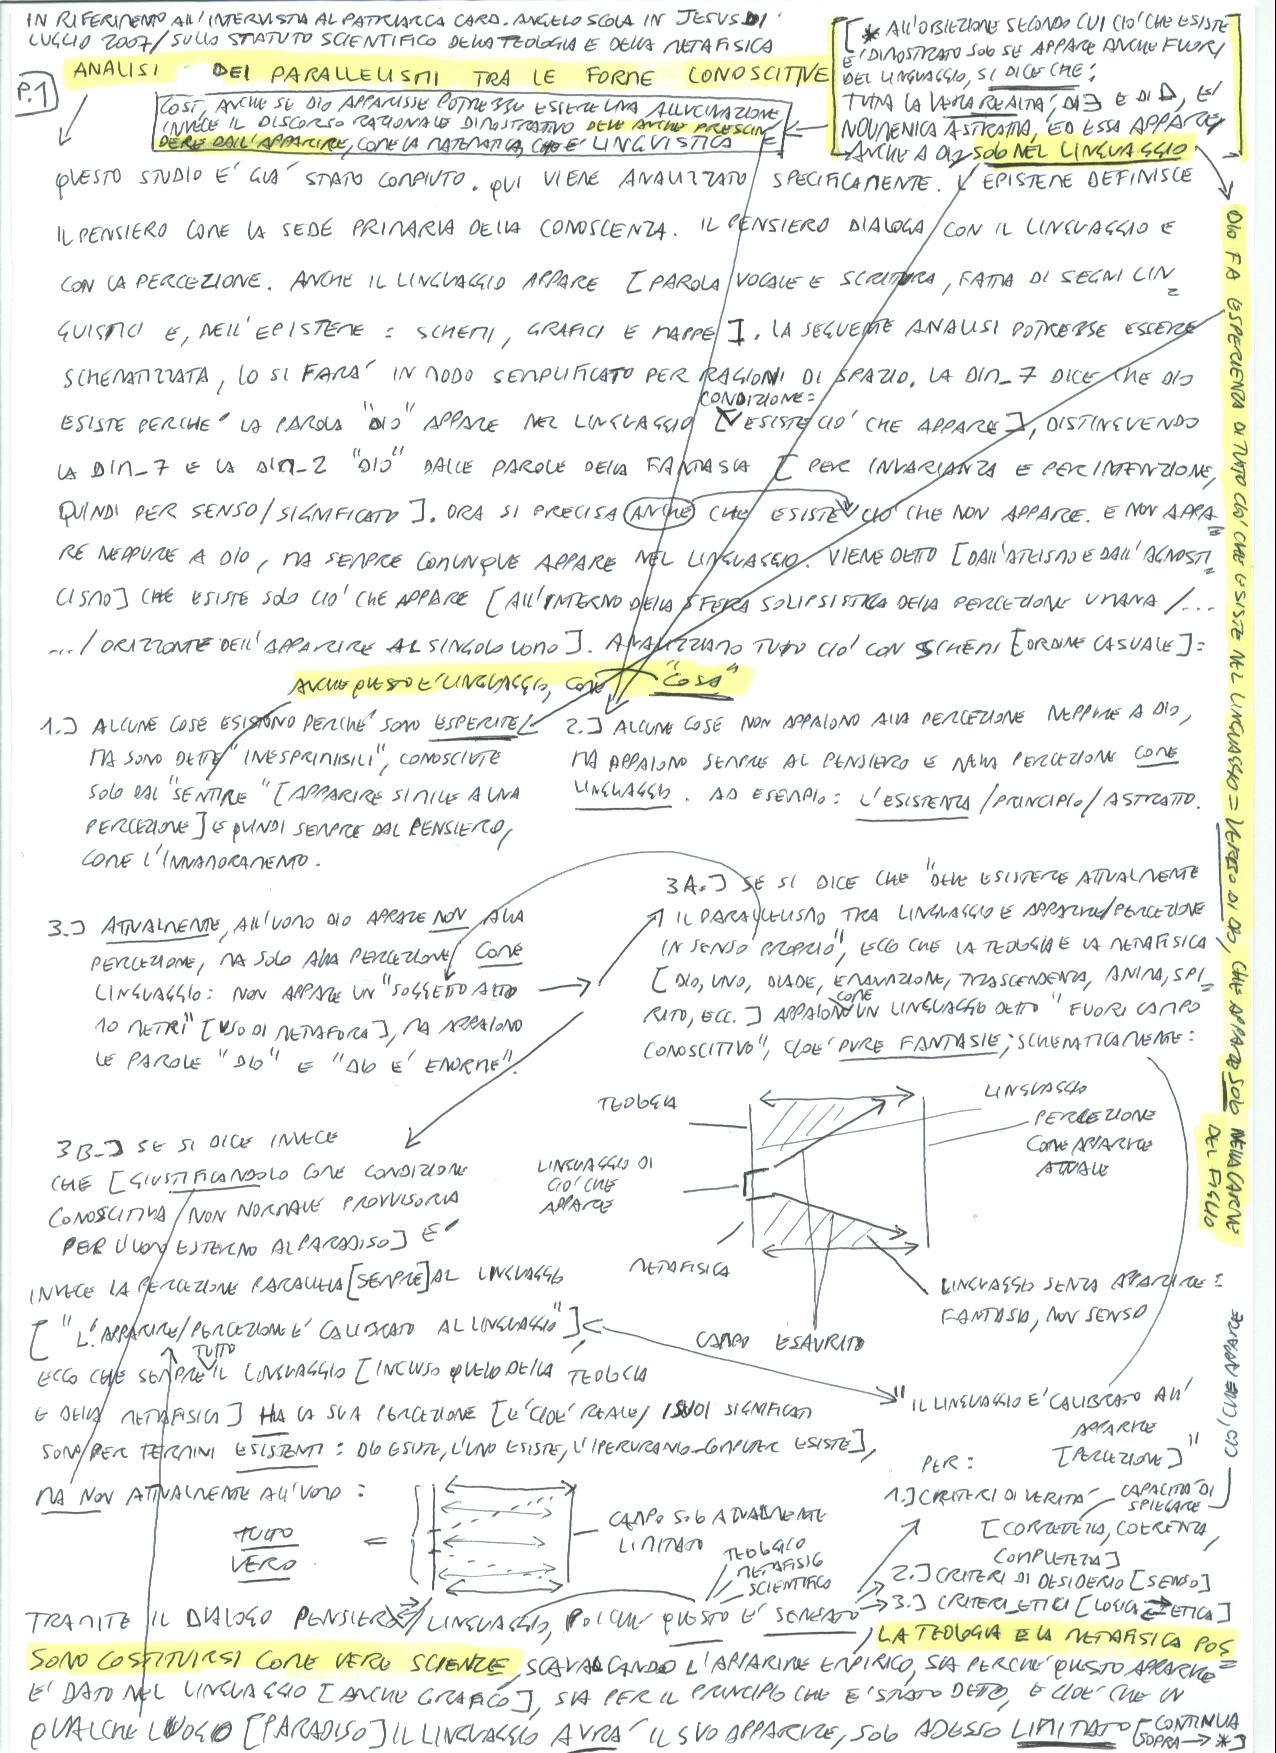 IN RIFERIMENTO ALL'INTERVISTA AL PATRIARCA CARD. ANGELO SCOLA IN JESUS DI
LUGLIO 2007/SULLO STATUTO SCIENTIFICO DELLA TEOLOGIA E DELLA METAFISICA
P.1
ANALISI DEI PARALLELISMI TRA LE FORME CONOSCITIVE
COSÌ, ANCHE SE DIO APPARISSE POTREBBE ESSERE UNA ALLUCINAZIONE
INVECE IL DISCORSO RAZIONALE DIMOSTRATIVO DEVE ANCHE PRESCIN
DERE DALL'APPARIRE, COME LA MATEMATICA, CHE E' LINGUISTICA
[* ALL'OBIEZIONE SECONDO CUI CIO' CHE ESISTE
E' DIMOSTRATO SOLO SE APPARE ANCHE FUORI
DEL LINGUAGGIO, SI DICE CHE:
TUTTA LA VERA REALTA', DI ∃ E DI Δ, E'
NOUMENICA ASTRATTA, ED ESSA APPARE
ANCHE A DIO SOLO NEL LINGUAGGIO
QUESTO STUDIO E' GIA' STATO COMPIUTO. QUI VIENE ANALIZZATO SPECIFICAMENTE. L'EPISTEME DEFINISCE
IL PENSIERO COME LA SEDE PRIMARIA DELLA CONOSCENZA. IL PENSIERO DIALOGA CON IL LINGUAGGIO E
CON LA PERCEZIONE. ANCHE IL LINGUAGGIO APPARE [PAROLA VOCALE E SCRITTURA, FATTA DI SEGNI LIN=
GUISTICI E, NELL'EPISTEME: SCHEMI, GRAFICI E MAPPE]. LA SEGUENTE ANALISI POTREBBE ESSERE
SCHEMATIZZATA, LO SI FARA' IN MODO SEMPLIFICATO PER RAGIONI DI SPAZIO. LA DIM_7 DICE CHE DIO
CONDIZIONE:
ESISTE PERCHE' LA PAROLA "DIO" APPARE NEL LINGUAGGIO [ESISTE CIO' CHE APPARE], DISTINGUENDO
LA DIM_7 E LA DIM_2 "DIO" DALLE PAROLE DELLA FANTASIA [PER INVARIANZA E PER INTENZIONE,
QUINDI PER SENSO/SIGNIFICATO]. ORA SI PRECISA ANCHE CHE ESISTE CIO' CHE NON APPARE. E NON APPA=
RE NEPPURE A DIO, MA SEMPRE COMUNQUE APPARE NEL LINGUAGGIO. VIENE DETTO [DALL'ATEISMO E DALL'AGNOSTI=
CISMO] CHE ESISTE SOLO CIO' CHE APPARE [ALL'INTERNO DELLA SFERA SOLIPSISTICA DELLA PERCEZIONE UMANA /...
.../ ORIZZONTE DELL'APPARIRE AL SINGOLO UOMO]. ANALIZZIAMO TUTTO CIO' CON SCHEMI [ORDINE CASUALE]:
ANCHE QUESTO E' LINGUAGGIO, COME "COSA"
1.] ALCUNE COSE ESISTONO PERCHE' SONO ESPERITE
MA SONO DETTE "INESPRIMIBILI", CONOSCIUTE
SOLO DAL "SENTIRE" [APPARIRE SIMILE A UNA
PERCEZIONE] E QUINDI SEMPRE DAL PENSIERO,
COME L'INNAMORAMENTO.
2.] ALCUNE COSE NON APPAIONO ALLA PERCEZIONE NEPPURE A DIO,
MA APPAIONO SEMPRE AL PENSIERO E NELLA PERCEZIONE COME
LINGUAGGIO. AD ESEMPIO: L'ESISTENZA/PRINCIPIO/ASTRATTO.
3.] ATTUALMENTE, ALL'UOMO DIO APPARE NON ALLA
PERCEZIONE, MA SOLO ALLA PERCEZIONE COME
LINGUAGGIO: NON APPARE UN "SOGGETTO ALTO
10 METRI" [USO DI METAFORA], MA APPAIONO
LE PAROLE "DIO" E "DIO E' ENORME".
3A.] SE SI DICE CHE "DEVE ESISTERE ATTUALMENTE
IL PARALLELISMO TRA LINGUAGGIO E APPARIRE/PERCEZIONE
IN SENSO PROPRIO", ECCO CHE LA TEOLOGIA E LA METAFISICA
[DIO, UNO, DIADE, EMANAZIONE, TRASCENDENZA, ANIMA, SPI=
RITO, ECC.] APPAIONO COME UN LINGUAGGIO DETTO "FUORI CAMPO
CONOSCITIVO", CIOE' PURE FANTASIE; SCHEMATICAMENTE:
TEOLOGIA
LINGUAGGIO
PERCEZIONE
COME APPARIRE
ATTUALE
LINGUAGGIO DI
CIO' CHE
APPARE
METAFISICA
LINGUAGGIO SENZA APPARIRE:
FANTASIA, NON SENSO
CAMPO ESAURITO
3B.] SE SI DICE INVECE
CHE [GIUSTIFICANDOLO COME CONDIZIONE
CONOSCITIVA NON NORMALE PROVVISORIA
PER L'UOMO ESTERNO AL PARADISO] E'
INVECE LA PERCEZIONE PARALLELA [SEMPRE] AL LINGUAGGIO
["L'APPARIRE/PERCEZIONE E' CALIBRATO AL LINGUAGGIO"],
ECCO CHE SEMPRE TUTTO IL LINGUAGGIO [INCLUSO QUELLO DELLA TEOLOGIA
E DELLA METAFISICA] HA LA SUA PERCEZIONE [E' CIOE' REALE/I SUOI SIGNIFICATI
SONO PER TERMINI ESISTENTI: DIO ESISTE, L'UNO ESISTE, L'IPERURANIO_COMPUTER ESISTE],
MA NON ATTUALMENTE ALL'UOMO:
TUTTO
VERO
=
CAMPO SOLO ATTUALMENTE
LIMITATO
TEOLOGICO
METAFISICO
SCIENTIFICO
"IL LINGUAGGIO E' CALIBRATO ALL'
APPARIRE
[PERCEZIONE]"
PER:
1.] CRITERI DI VERITA'
CAPACITA' DI
SPIEGARE
[CORRETTEZZA, COERENZA,
COMPLETEZZA]
2.] CRITERI DI DESIDERIO [SENSO]
3.] CRITERI_ETICI [LOGICA ETICA]
TRAMITE IL DIALOGO PENSIERO/LINGUAGGIO, POICHE' QUESTO E' SENSATO
, LA TEOLOGIA E LA METAFISICA POS=
SONO COSTITUIRSI COME VERE SCIENZE, SCAVALCANDO L'APPARIRE EMPIRICO, SIA PERCHE' QUESTO APPARIRE
E' DATO NEL LINGUAGGIO [ANCHE GRAFICO], SIA PER IL PRINCIPIO CHE E' STATO DETTO, E CIOE' CHE IN
QUALCHE LUOGO [PARADISO] IL LINGUAGGIO AVRA' IL SUO APPARIRE, SOLO ADESSO LIMITATO [CONTINUA
SOPRA → *]
DIO FA ESPERIENZA DI TUTTO CIO' CHE ESISTE NEL LINGUAGGIO = VERBO DI DIO, CHE APPARE SOLO NELLA CARNE
DEL FIGLIO